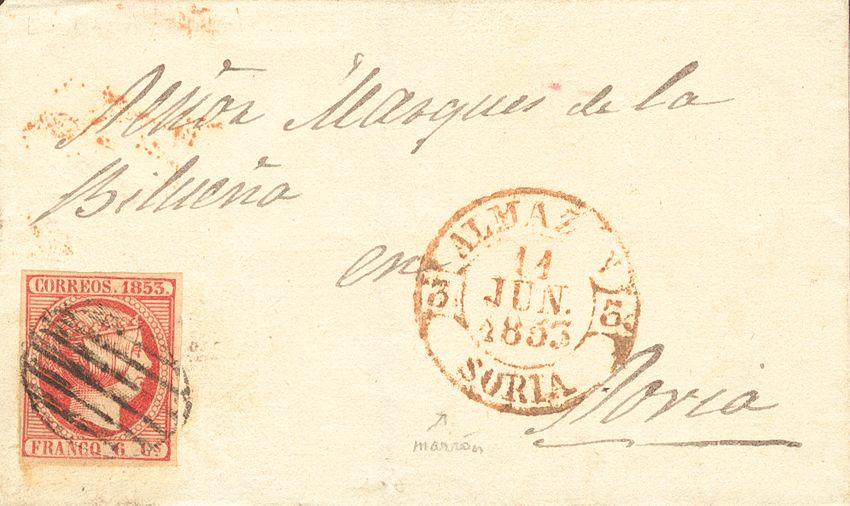 Señor Marques de la
Bilueña
en
Soria
CORREOS. 1853.
FRANCO 6 Cs
ALMAZ
3 3
11
JUN.
1853
SORIA
marrón